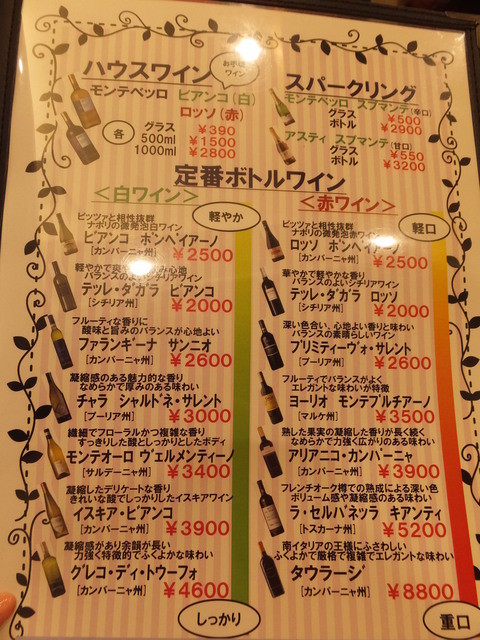 ハウスワイン
お手頃
ワイン
モンテベッロ ビアンコ(白)
ロッソ(赤)
各
グラス ¥390
500ml ¥1500
1000ml ¥2800
スパークリング
モンテベッロ スプマンテ(辛口)
グラス ¥500
ボトル ¥2900
アスティ スプマンテ(甘口)
グラス ¥550
ボトル ¥3200
定番ボトルワイン
<白ワイン>
軽やか
ピッツァと相性抜群
ナポリの微発泡白ワイン
ビアンコ ポンペイアーノ
[カンパーニャ州] ¥2500
軽やかで
バランスのよいシチリアワイン
テッレ・ダガラ ビアンコ
[シチリア州] ¥2000
フルーティな香りに
酸味と旨みのバランスが心地よい
ファランギーナ サンニオ
[カンパーニャ州] ¥2600
凝縮感のある魅力的な香り
なめらかで厚みのある味わい
チャラ シャルドネ・サレント
[プーリア州] ¥3000
繊細でフローラルかつ複雑な香り
すっきりした酸としっかりとしたボディ
モンテオーロ ヴェルメンティーノ
[サルデーニャ州] ¥3400
凝縮したデリケートな香り
きれいな酸でしっかりしたイスキアワイン
イスキア・ビアンコ
[カンパーニャ州] ¥3900
凝縮感があり余韻が長い
力強く特徴的でふくよかな味わい
グレコ・ディ・トゥーフォ
[カンパーニャ州] ¥4600
しっかり
<赤ワイン>
軽口
ピッツァと相性抜群
ナポリの微発泡赤ワイン
ロッソ ポンペイアーノ
[カンパーニャ州] ¥2500
華やかで軽やかな香り
バランスのよいシチリアワイン
テッレ・ダガラ ロッソ
[シチリア州] ¥2000
深い色合い、心地よい香りと味わい
エレガンスの素晴らしいワイン
プリミティーヴォ・サレント
[プーリア州] ¥2600
フルーティでバランスがよく
エレガントな味わいが特徴
ヨーリオ モンテプルチアーノ
[マルケ州] ¥3500
熟した果実の凝縮した香りが長く続く
なめらかで力強く広がりのある味わい
アリアニコ・カンパーニャ
[カンパーニャ州] ¥3900
フレンチオーク樽での熟成による深い色
ボリューム感や凝縮感のある味わい
ラ・セルバネッラ キアンティ
[トスカーナ州] ¥5200
南イタリアの王様にふさわしい
ふくよかで厳格で複雑でエレガントな味わい
タウラージ
[カンパーニャ州] ¥8800
重口